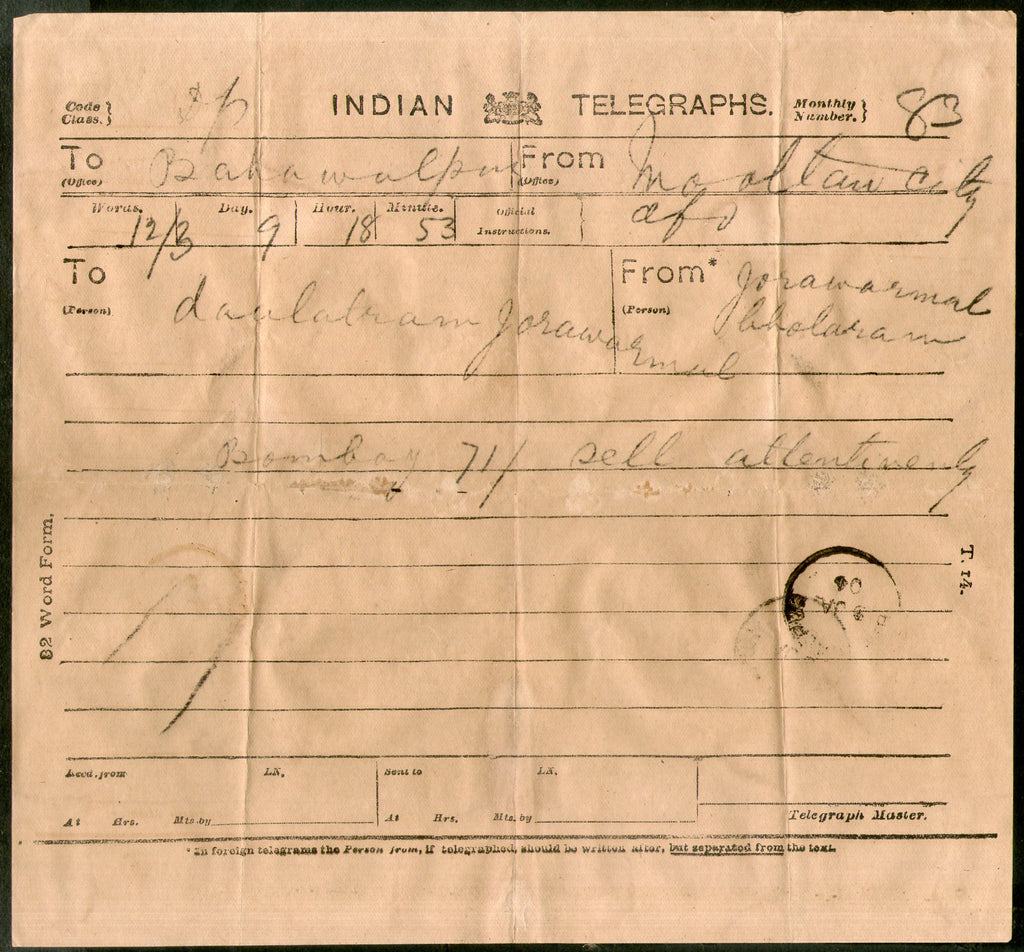 Code
Class. }
INDIAN TELEGRAPHS.
Monthly
Number. } 83
To Bahawalpur From Mooltan City
(Office) (Office)
Words. Day. Hour. Minute. Official
Instructions.
12/3 9 18 53
To From*
(Person) daulatram Jorawarmal (Person) Jorawarmal
bholaram
Bombay 71/ sell attentively
32 Word Form.
T. 14.
04
Recd. from LN. Sent to LN.
At Hrs. Mts. by At Hrs. Mts. by Telegraph Master.
* In foreign telegrams the Person from, if telegraphed, should be written after, but separated from the text.